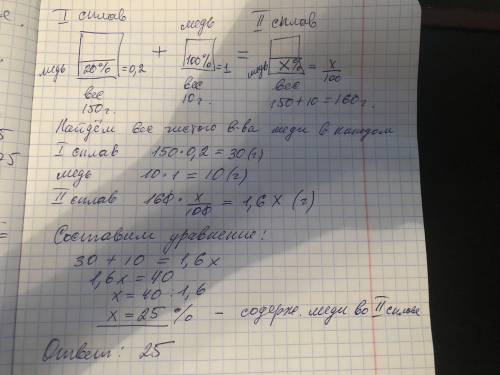 I сплав медь II сплав
медь 20% = 0,2 + 100% = 1 = медь x% = x/100
вес вес вес
150г. 10г. 150+10=160г.
Найдём вес чистого в-ва меди в каждом
I сплав 150·0,2 = 30 (г)
медь 10·1 = 10 (г)
II сплав 160 · x/100 = 1,6x (г)
Составим уравнение:
30 + 10 = 1,6x
1,6x = 40
x = 40 : 1,6
x = 25 % - содерж. меди во II сплаве
Ответ: 25